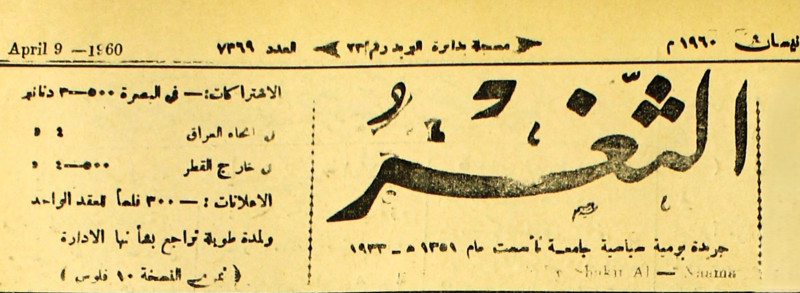 نيسان ١٩٦٠ م مسجلة بدائرة البريد رقم ٢٣ العدد ٧٣٦٩ April 9 —1960
الثغر
جريدة يومية سياسية جامعة تأسست عام ١٣٥١ ه – ١٩٣٣
Shukri Al — Naama
الاشتراكات:— في البصرة ٥٠٠—٣ دنانير
في انحاء العراق ٤ »
في خارج القطر ٥٠٠—٤ »
الاعلانات :— ٣٠٠ فلساً للعقد الواحد
ولمدة طويلة تراجع بشأنها الادارة
( ثمن النسخة ١٠ فلوس )